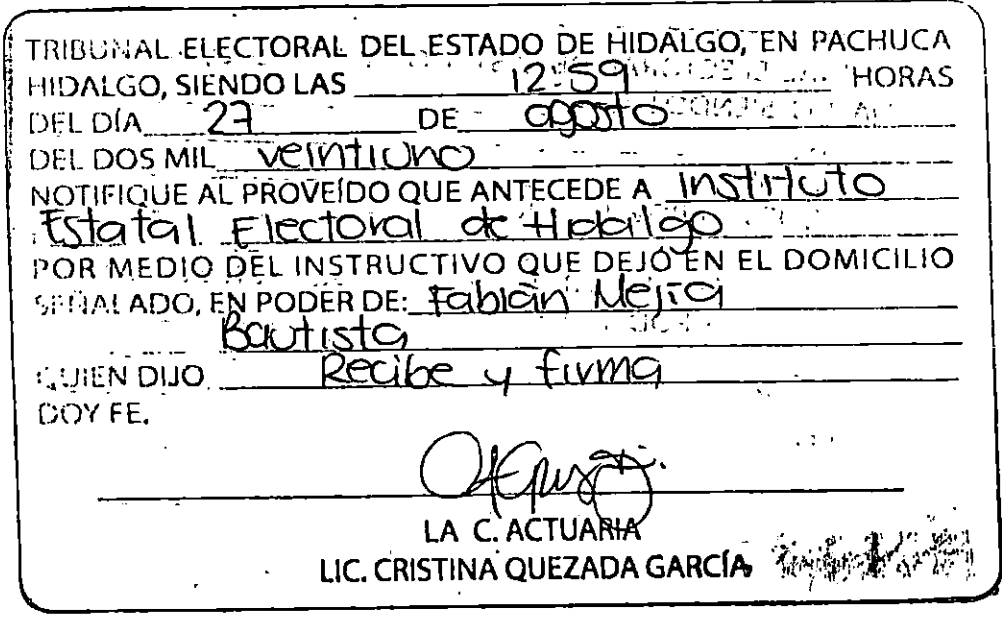 TRIBUNAL ELECTORAL DEL ESTADO DE HIDALGO, EN PACHUCA
HIDALGO, SIENDO LAS 12:59 HORAS
DEL DÍA 27 DE agosto
DEL DOS MIL veintiuno
NOTIFIQUE AL PROVEÍDO QUE ANTECEDE A Instituto
Estatal Electoral de Hidalgo
POR MEDIO DEL INSTRUCTIVO QUE DEJÓ EN EL DOMICILIO
SEÑALADO, EN PODER DE: Fabián Mejía
Bautista
QUIEN DIJO Recibe y firma
DOY FE.
LA C. ACTUARIA
LIC. CRISTINA QUEZADA GARCÍA